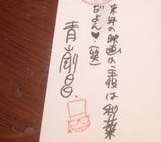 来年の映画の主役は利葉
だよん♥(笑)
青山剛昌